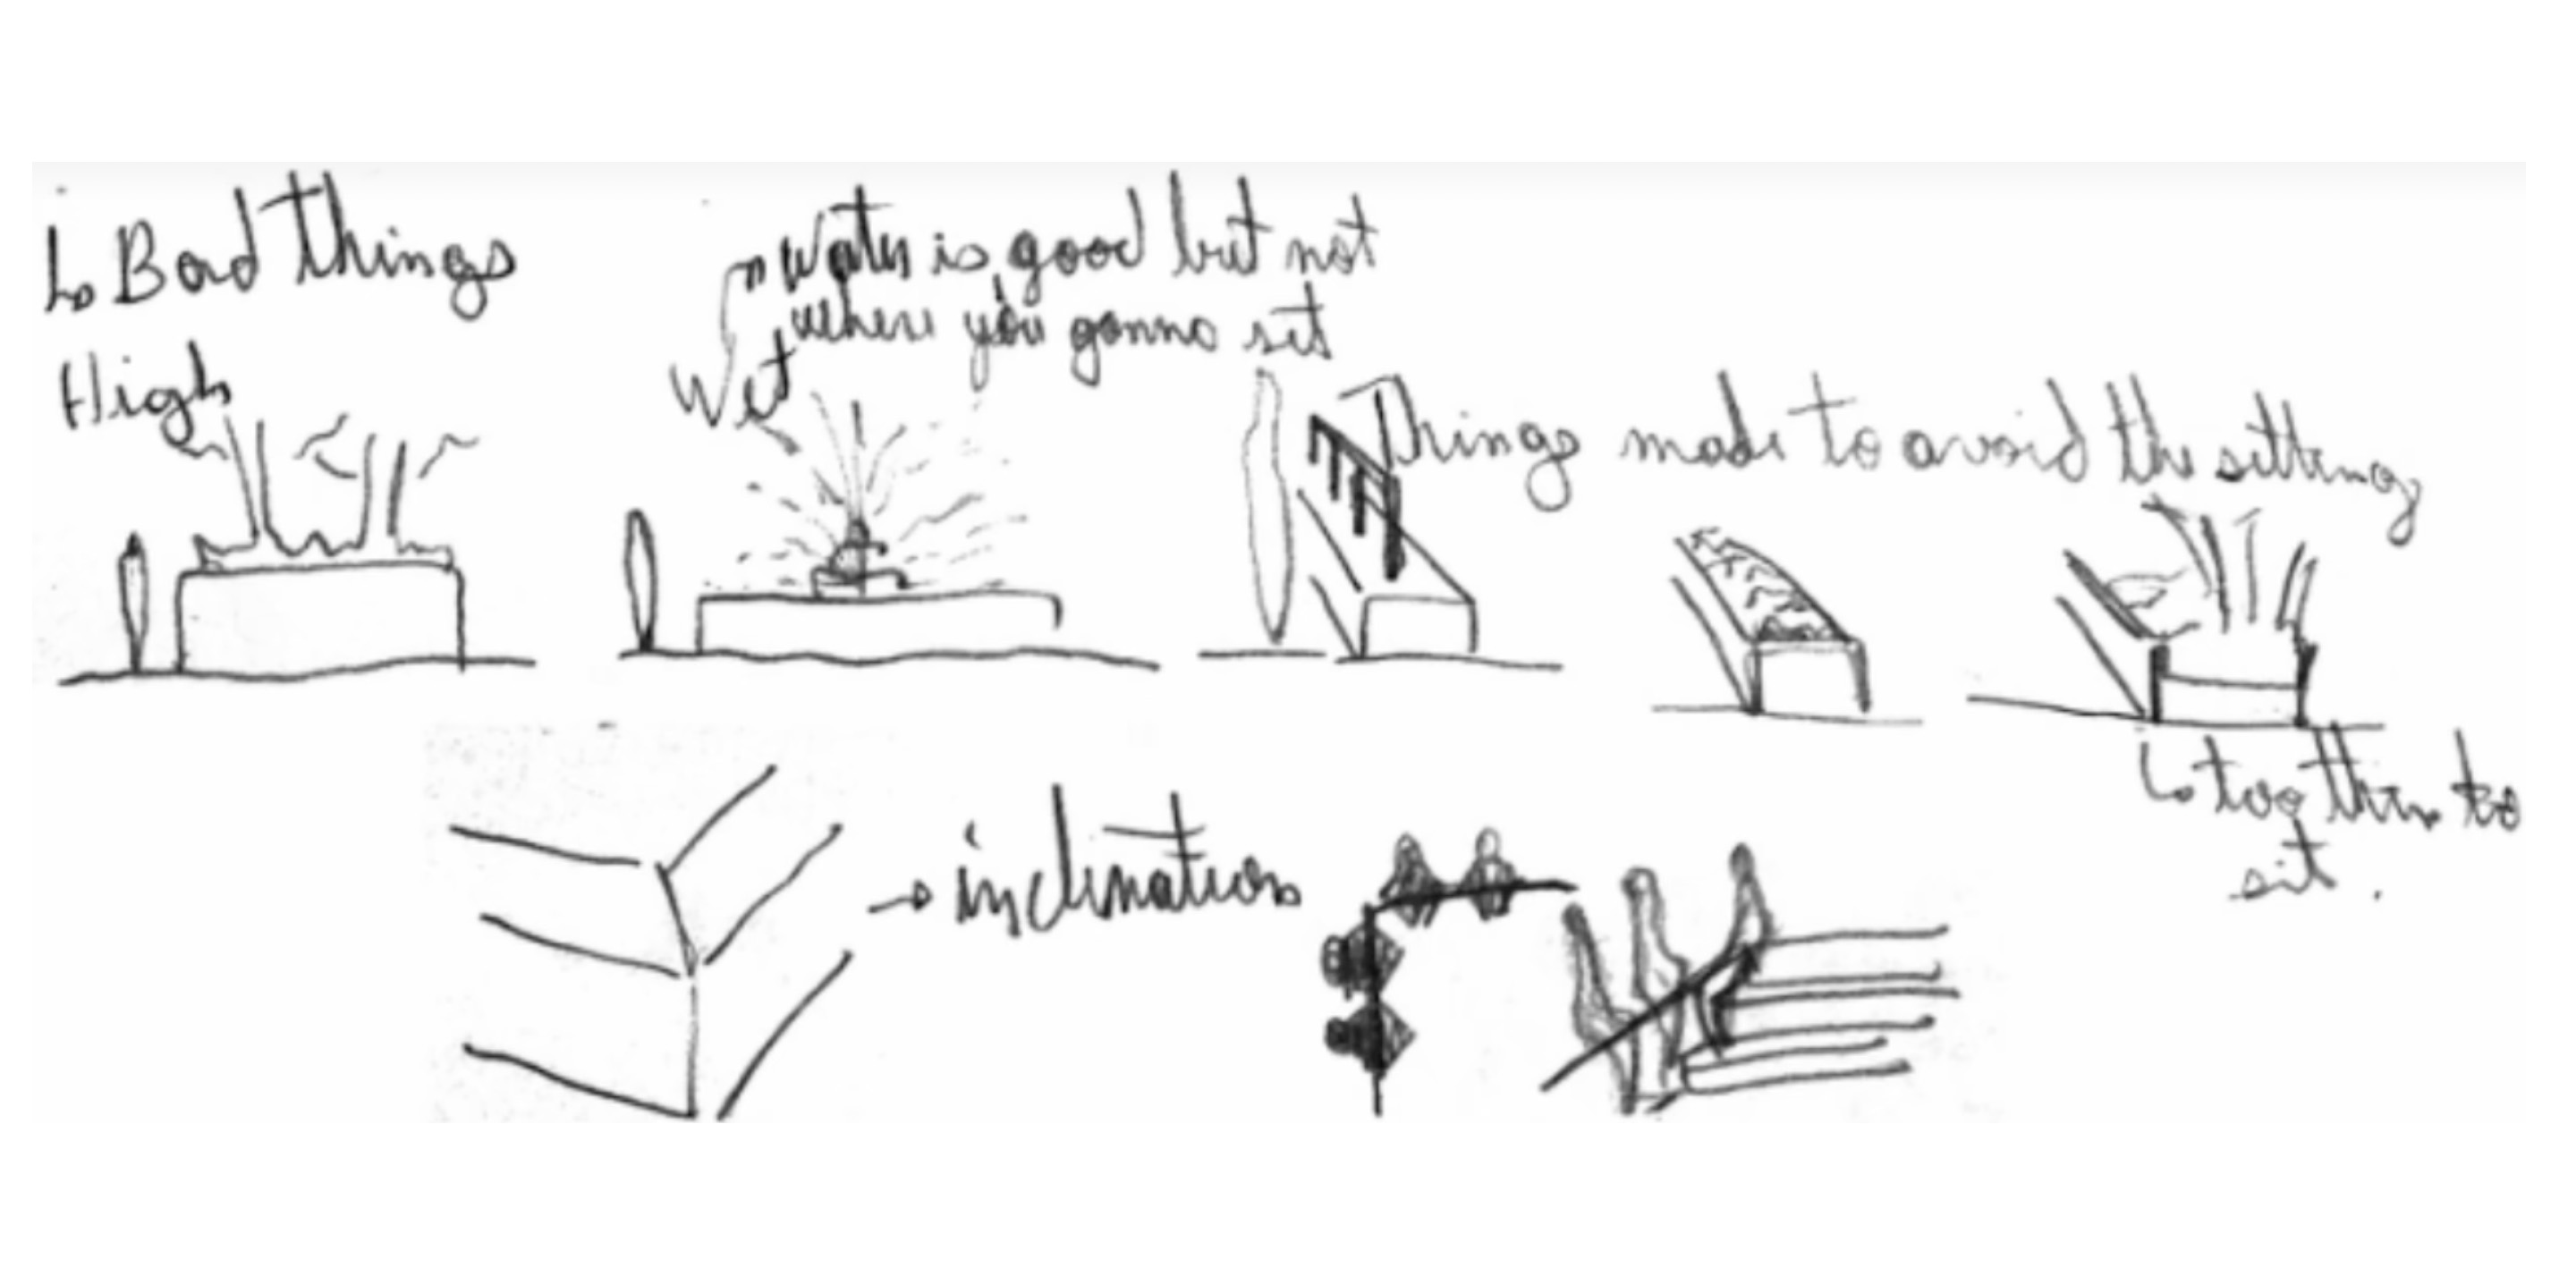 ↳ Bad things
High
→ Water is good but not
where you gonna sit
Wet
Things made to avoid the sitting
↳ too thin to
sit.
→ inclination